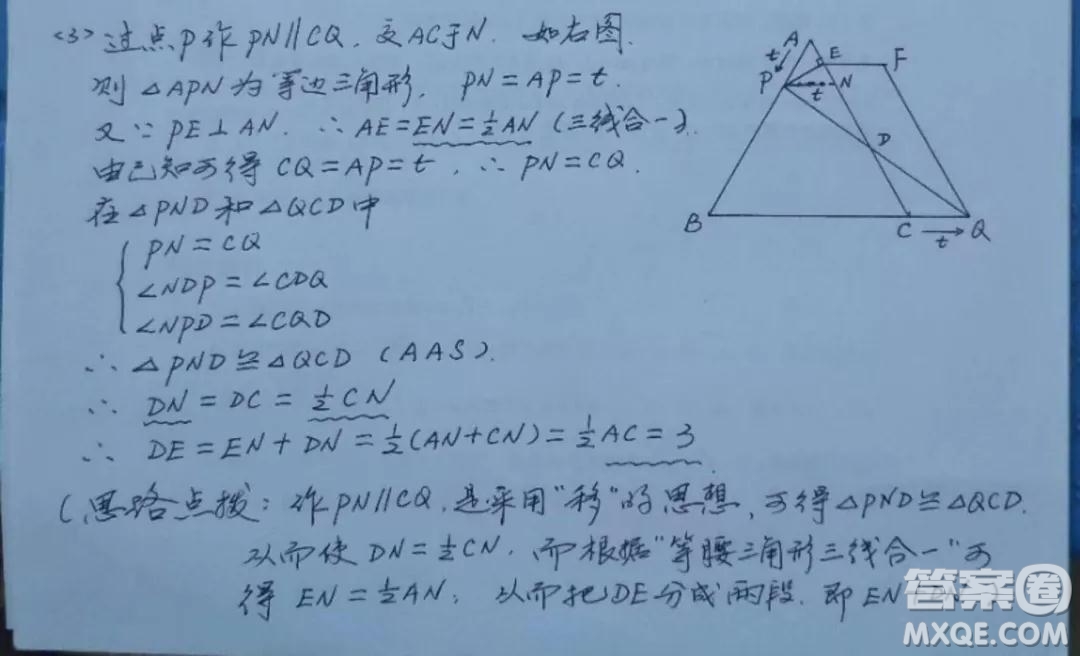 <3> 过点P作 PN∥CQ, 交AC于N. 如右图.
则 △APN为等边三角形, PN=AP=t.
又∵ PE⊥AN. ∴ AE=EN=½AN (三线合一).
由已知可得 CQ=AP=t, ∴ PN=CQ.
在△PND和△QCD中
PN=CQ
∠NDP=∠CDQ
∠NPD=∠CQD
∴ △PND≌△QCD (AAS).
∴ DN=DC=½CN
∴ DE=EN+DN=½(AN+CN)=½AC=3
(思路点拨: 作PN∥CQ, 是采用"移"的思想, 可得△PND≌△QCD.
从而使 DN=½CN. 而根据"等腰三角形三线合一"可
得 EN=½AN; 从而把DE分成两段. 即 EN
A
E
F
t
P
N
t
D
B
C
t
Q
答案圈
MXQE.COM